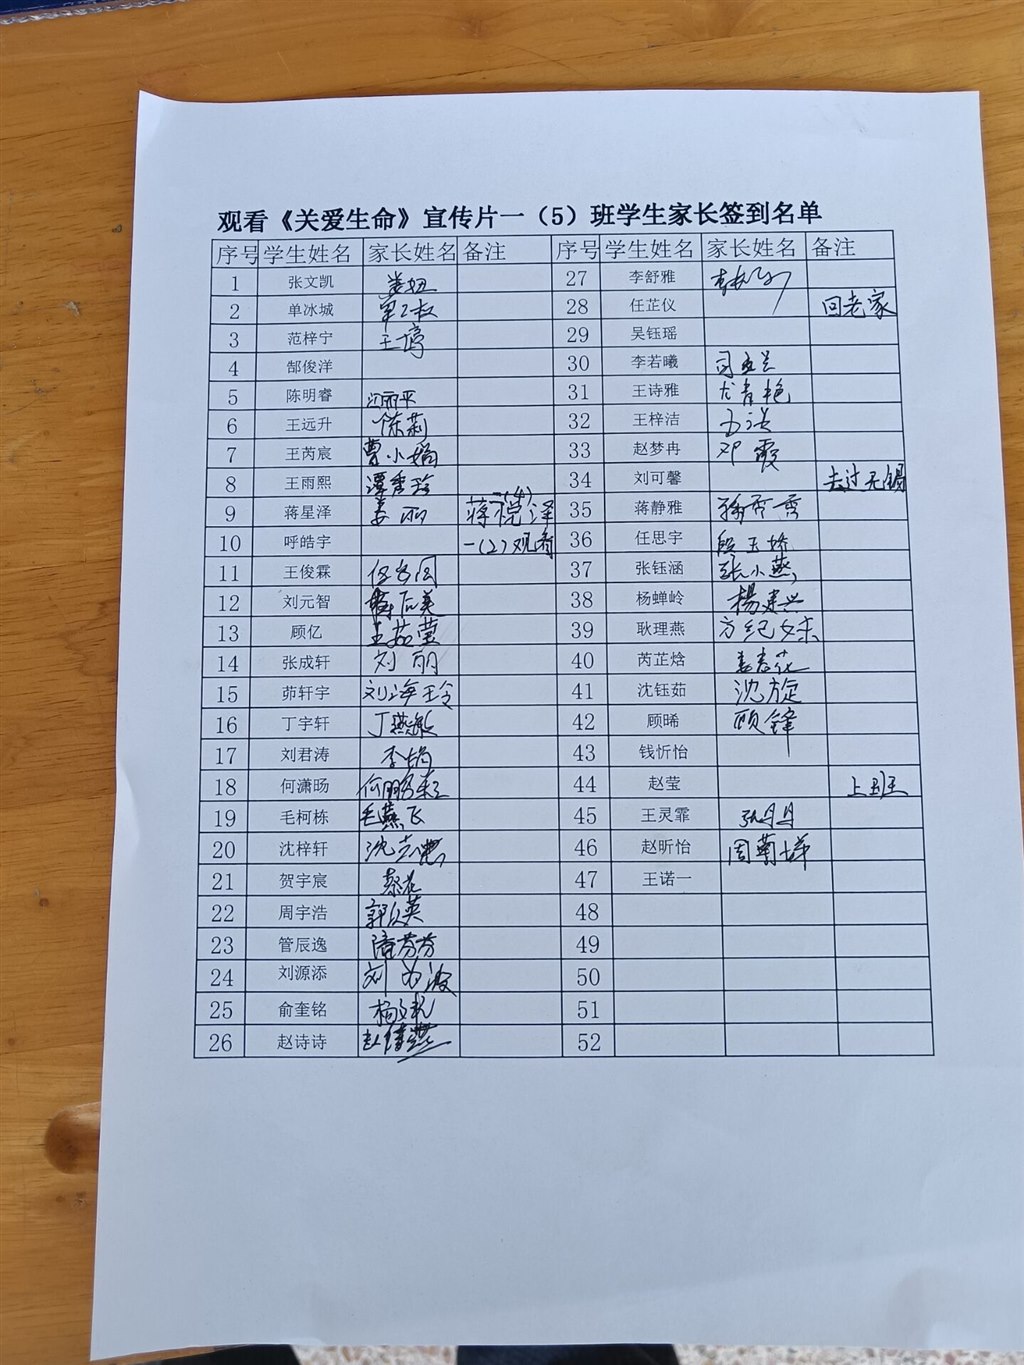 观看《关爱生命》宣传片一（5）班学生家长签到名单
序号 学生姓名 家长姓名 备注 序号 学生姓名 家长姓名 备注
1 张文凯 27 李舒雅
2 单冰城 28 任芷仪 回老家
3 范梓宁 王婷 29 吴钰瑶
4 郜俊洋 30 李若曦
5 陈明睿 31 王诗雅 尤青艳
6 王远升 陈莉 32 王梓洁
7 王芮宸 曹小娟 33 赵梦冉 邓霞
8 王雨熙 谭秀玲 34 刘可馨 去过无锡
9 蒋星泽 姜丽 一(4)蒋悦泽 35 蒋静雅 孙秀秀
10 呼皓宇 一(2)观看 36 任思宇 段玉娇
11 王俊霖 37 张钰涵 张小燕
12 刘元智 38 杨蝉岭 楊建兴
13 顾亿 王茹莹 39 耿理燕
14 张成轩 刘丽 40 芮芷焓 姜春花
15 茆轩宇 刘海玲 41 沈钰茹 沈旋
16 丁宇轩 丁燕敏 42 顾晞 顾锋
17 刘君涛 李娟 43 钱忻怡
18 何潇旸 44 赵莹 上班
19 毛柯栋 毛燕飞 45 王灵霏 张丹丹
20 沈梓轩 46 赵昕怡 周菊娣
21 贺宇宸 47 王诺一
22 周宇浩 48
23 管辰逸 49
24 刘源添 50
25 俞奎铭 51
26 赵诗诗 赵倩燕 52